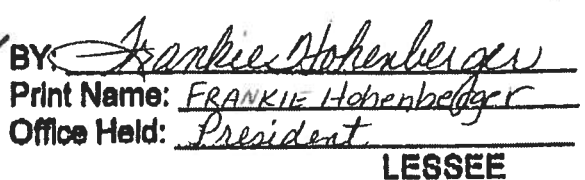 BY: Frankie Hohenberger
Print Name: FRANKIE Hohenberger
Office Held: President
LESSEE